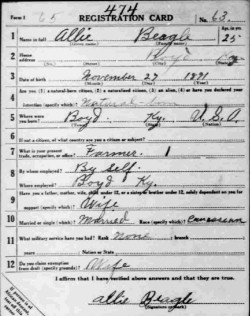 474
Form 1 65 REGISTRATION CARD No. 63
1 Name in full Allie Beagle Age, in yrs. 25
(Given name) (Family name)
2 Home address Boyd Ky.
(No.) (Street) (City) (State)
3 Date of birth November 27 1891
(Month) (Day) (Year)
4 Are you (1) a natural-born citizen, (2) a naturalized citizen, (3) an alien, (4) or have you declared your
intention (specify which)? Natural-born
5 Where were you born? Boyd Ky. U.S.A.
(Town) (State) (Nation)
6 If not a citizen, of what country are you a citizen or subject?
7 What is your present trade, occupation, or office? Farmer 1
8 By whom employed? By self.
Where employed? Boyd Ky.
9 Have you a father, mother, wife, child under 12, or a sister or brother under 12, solely dependent on you for
support (specify which)? Wife
10 Married or single (which)? Married Race (specify which)? Caucasian
11 What military service have you had? Rank None branch
years Nation or State
12 Do you claim exemption from draft (specify grounds)? Wife
I affirm that I have verified above answers and that they are true.
Allie Beagle
(Signature or mark)